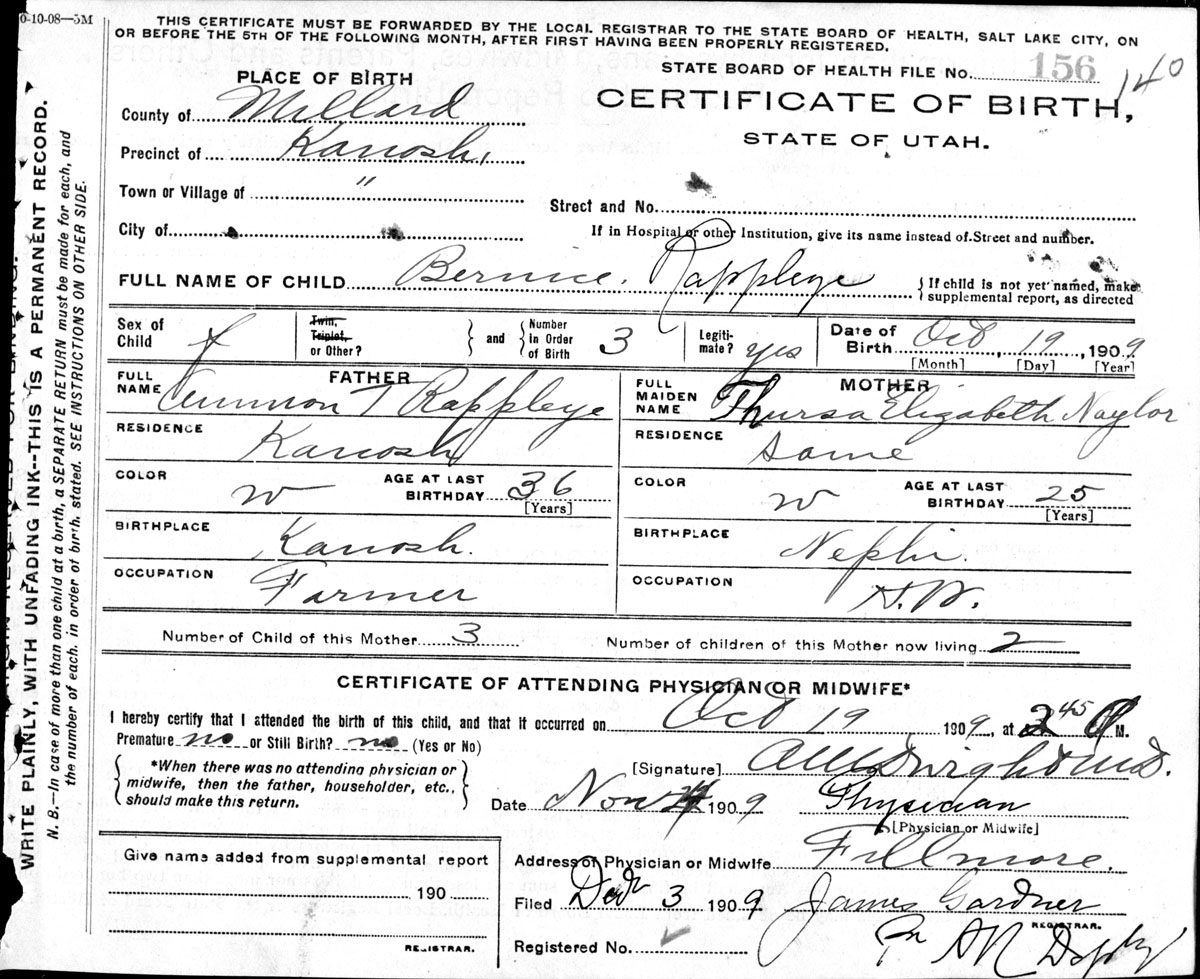 0-10-08—5M
THIS CERTIFICATE MUST BE FORWARDED BY THE LOCAL REGISTRAR TO THE STATE BOARD OF HEALTH, SALT LAKE CITY, ON
OR BEFORE THE 5TH OF THE FOLLOWING MONTH, AFTER FIRST HAVING BEEN PROPERLY REGISTERED.
WRITE PLAINLY, WITH UNFADING INK--THIS IS A PERMANENT RECORD.
N. B.—In case of more than one child at a birth, a SEPARATE RETURN must be made for each, and
the number of each, in order of birth, stated. SEE INSTRUCTIONS ON OTHER SIDE.
STATE BOARD OF HEALTH FILE No. 156 140
CERTIFICATE OF BIRTH,
STATE OF UTAH.
PLACE OF BIRTH
County of Millard
Precinct of Kanosh,
Town or Village of "
City of
Street and No.
If in Hospital or other Institution, give its name instead of Street and number.
FULL NAME OF CHILD Bernice. Rappleye
If child is not yet named, make
supplemental report, as directed
Sex of Child f
Twin, Triplet, or Other?
and Number in Order of Birth 3
Legitimate? yes
Date of Birth Oct, 19, 1909
[Month] [Day] [Year]
FATHER
FULL NAME Ammon T Rappleye
RESIDENCE Kanosh
COLOR W AGE AT LAST BIRTHDAY 36
[Years]
BIRTHPLACE Kanosh.
OCCUPATION Farmer
MOTHER
FULL MAIDEN NAME Thursa Elizabeth Naylor
RESIDENCE Same
COLOR W AGE AT LAST BIRTHDAY 25
[Years]
BIRTHPLACE Nephi.
OCCUPATION H.W.
Number of Child of this Mother 3 Number of children of this Mother now living 2
CERTIFICATE OF ATTENDING PHYSICIAN OR MIDWIFE*
I hereby certify that I attended the birth of this child, and that it occurred on Oct 19 1909, at 2 45 P M.
Premature no or Still Birth? no (Yes or No)
*When there was no attending physician or
midwife, then the father, householder, etc.,
should make this return.
[Signature] Dwight M.D.
Date Nov 1909 Physician
[Physician or Midwife]
Address of Physician or Midwife Fillmore.
Filed 3 1909 James Gardner
REGISTRAR.
Registered No.
Give name added from supplemental report
190
REGISTRAR.